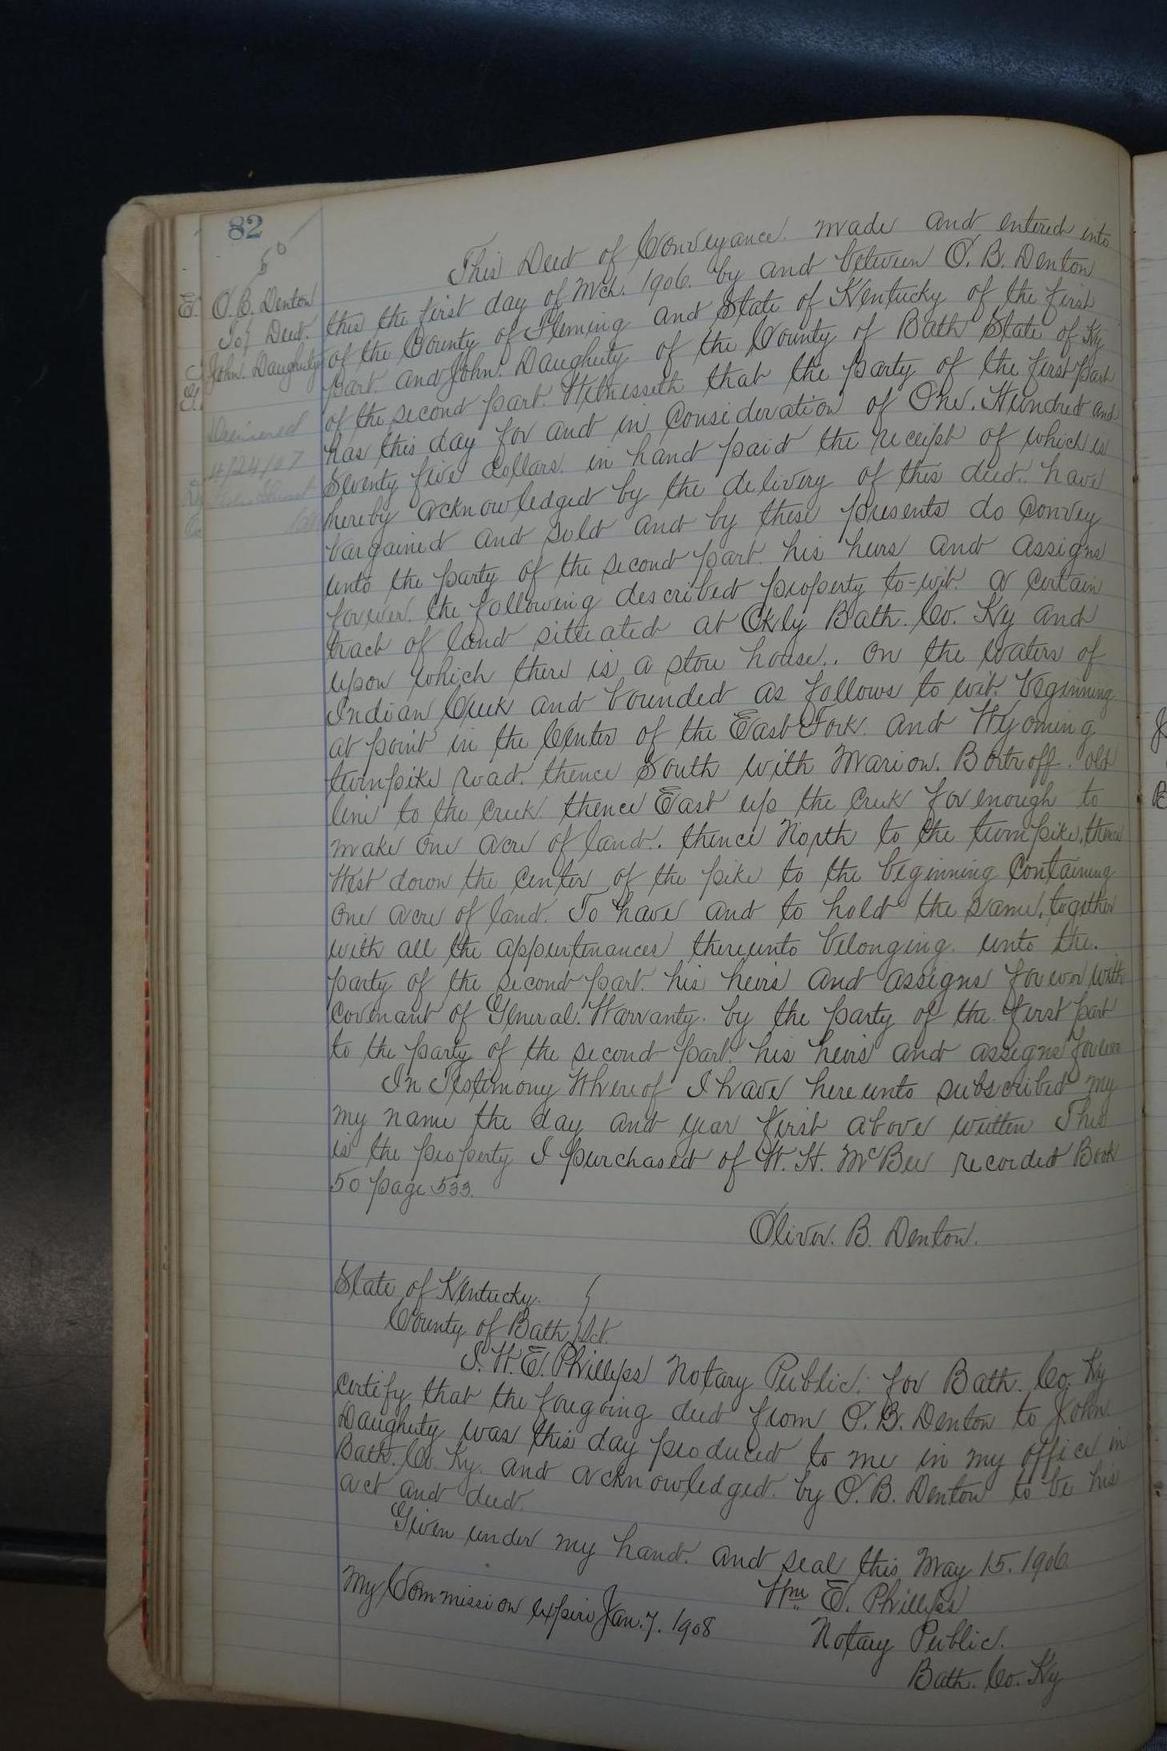 82
50
O. B. Denton
To } Deed.
John. Daugherty
Delivered
4/24/07
This Deed of Conveyance. made and entered into
this the first day of Mch. 1906. by and between O. B. Denton
of the County of Fleming and State of Kentucky of the first
part. and John. Daugherty of the County of Bath State of Ky
of the second part. Witnesseth that the party of the first part
has this day for and in consideration of One. Hundred and
Seventy five dollars. in hand paid the receipt of which is
hereby acknowledged by the delivery of this deed. have
bargained and sold and by these presents do convey
unto the party of the second part. his heirs and assigns
forever. the following described property to-wit. a certain
tract of land situated at Okly Bath. Co. Ky and
upon which there is a store house.. On the waters of
Indian Creek and bounded as follows to wit. beginning
at point in the Center of the East Fork. and Wyoming
turnpike road. thence South with Marion. Botroff. old
line to the creek. thence East up the creek for enough to
make one acre of land.. thence North to the turnpike, thence
West down the center of the pike to the beginning containing
one acre of land. To have and to hold the same, together
with all the appurtenances thereunto belonging. unto the.
party of the second part. his heirs and assigns forever with
covenant of General. Warranty. by the party of the first part
to the party of the second part. his heirs and assigns forever
In Testimony Whereof I have here unto subscribed my
my name the day and year first above written This
is the property I purchased of W. H. McBee recorded Book
50 page 533.
Oliver. B. Denton.
State of Kentucky. }
County of Bath } Sct.
I. W. E. Phillips Notary Public. for Bath. Co. Ky
certify that the foregoing deed from O. B. Denton to John.
Daugherty was this day produced to me in my office in
Bath. Co. Ky. and acknowledged. by O. B. Denton to be his
act and deed.
Given under my hand. and seal this May 15. 1906
My Commission expires Jan. 7. 1908
Wm E. Phillips
Notary Public.
Bath. Co. Ky